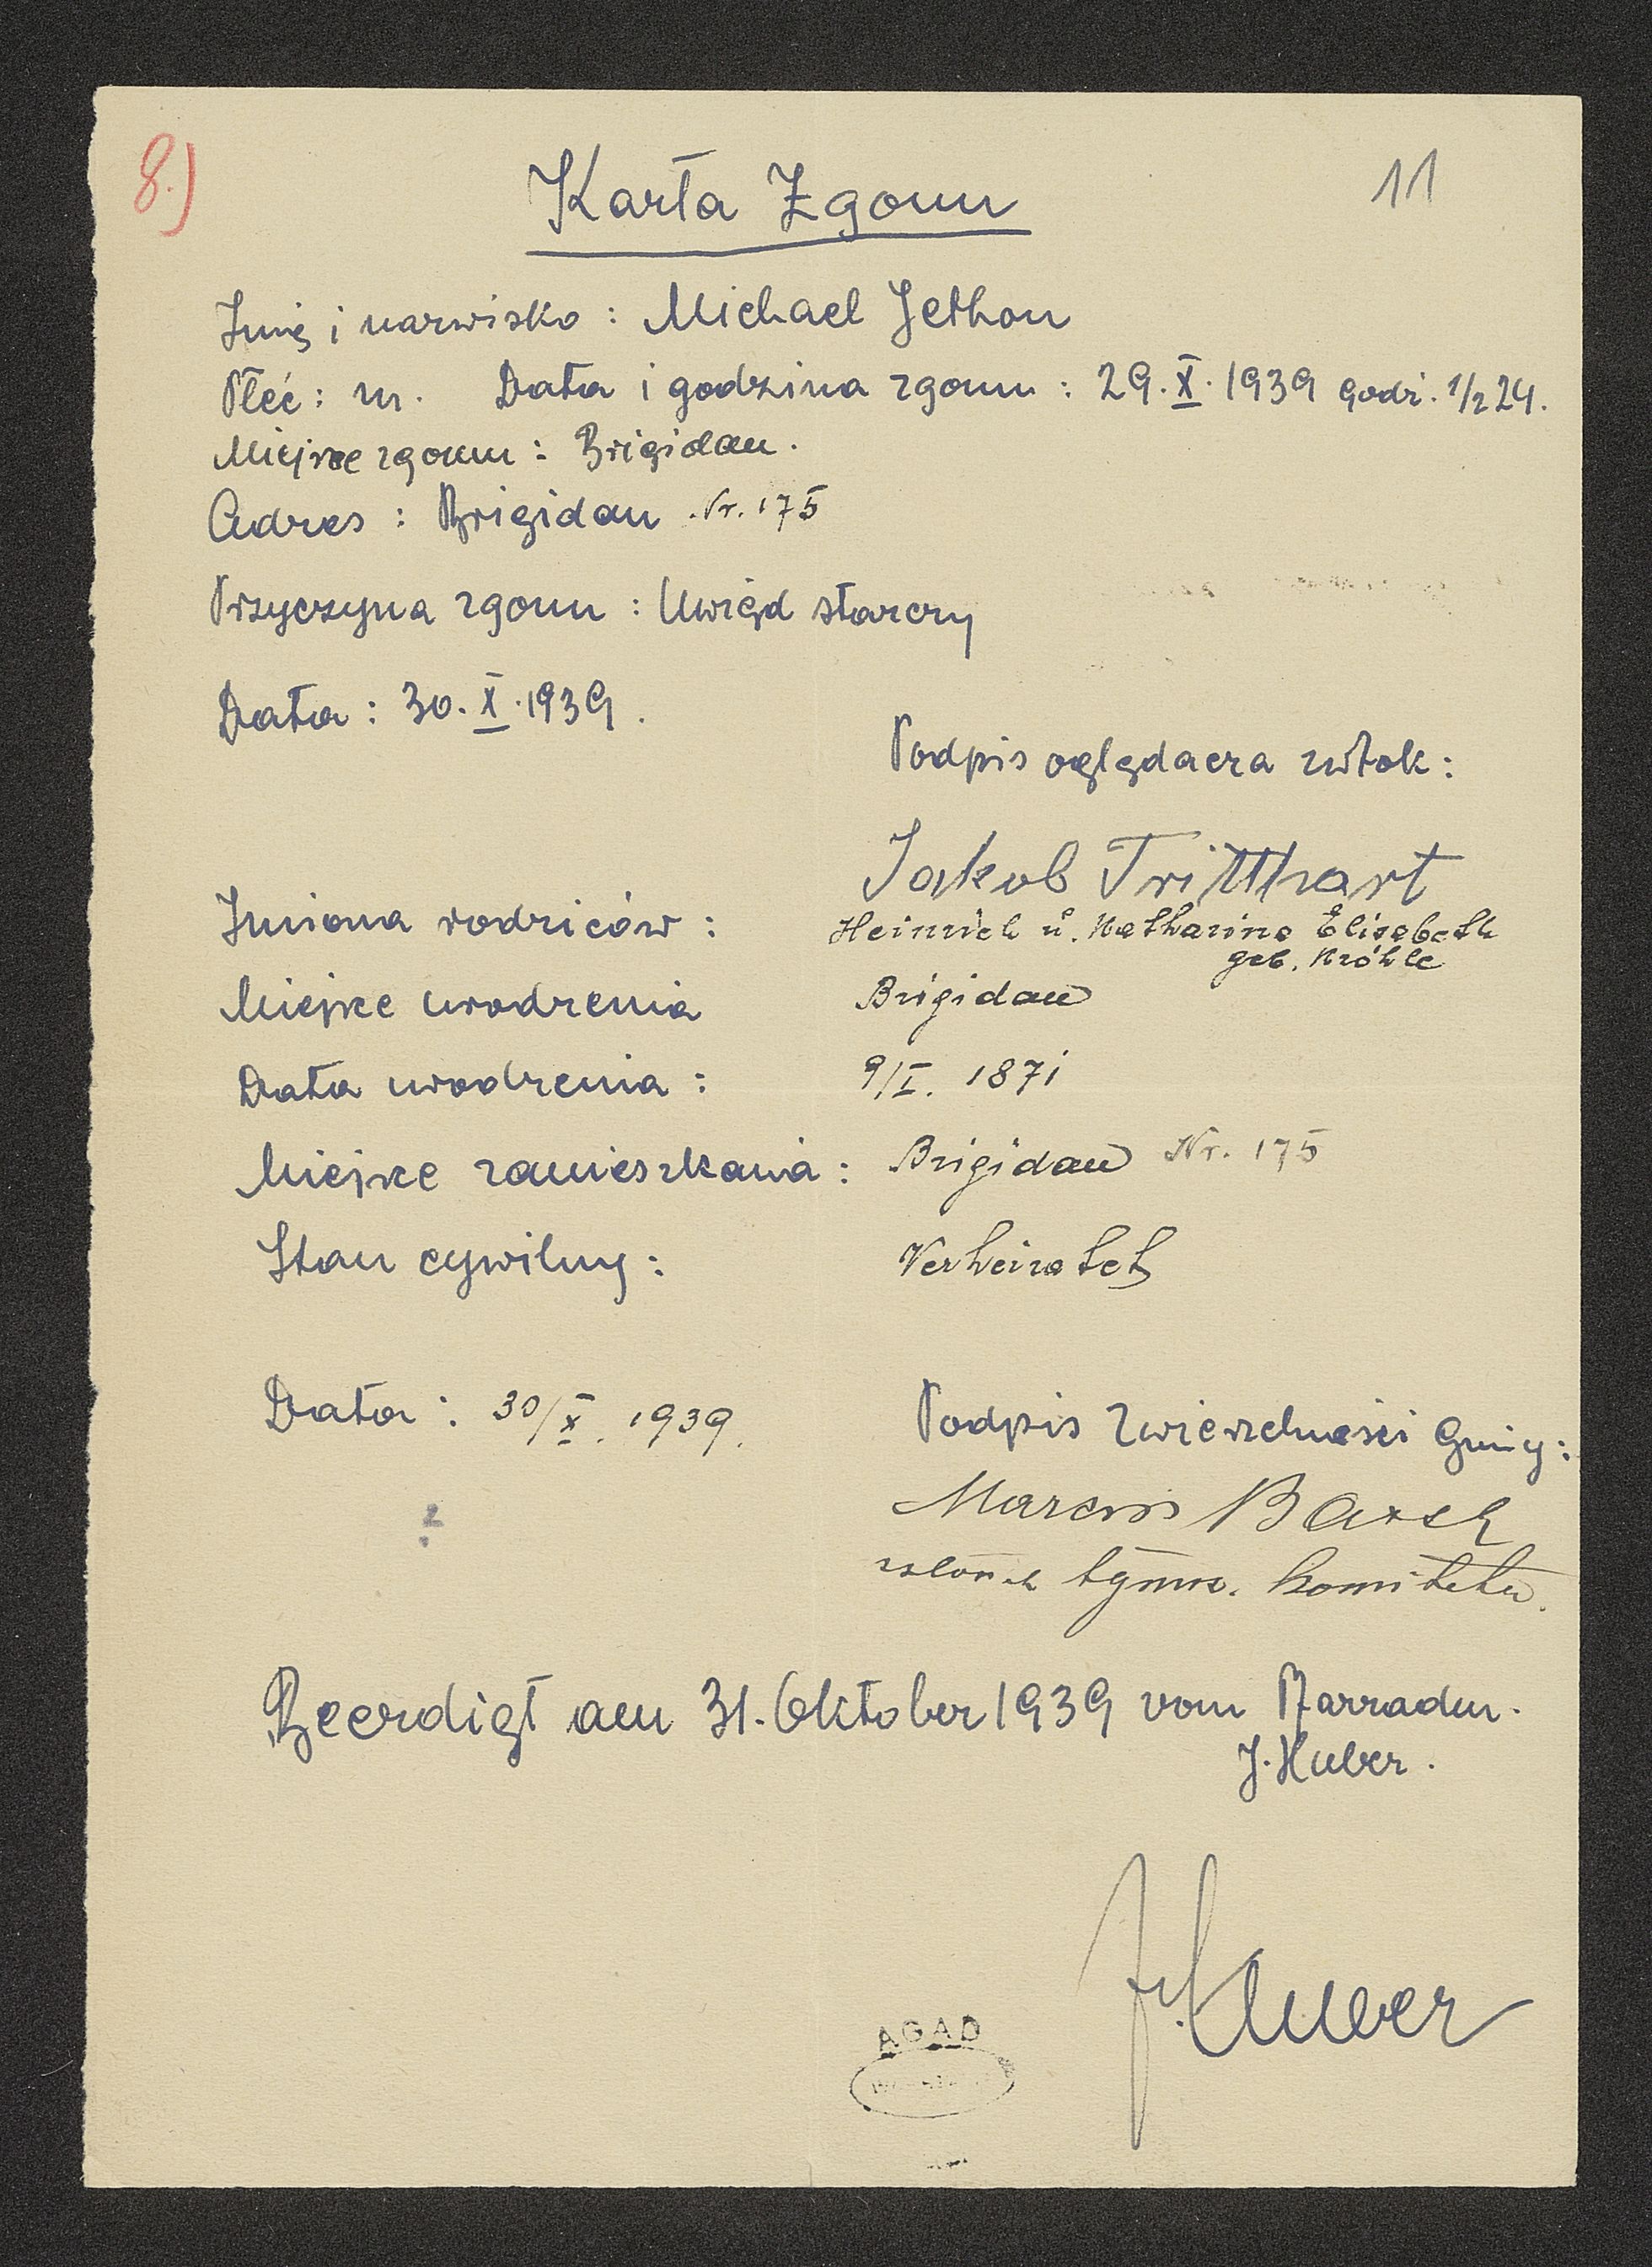 8.)
11
Karta Zgonu
Imię i nazwisko : Michael Jethon
Płeć : m. Data i godzina zgonu : 29.X.1939 godz. 1/2 24.
Miejsce zgonu : Brigidau.
Adres : Brigidau Nr. 175
Przyczyna zgonu : Uwiąd starczy
Data : 30.X.1939.
Podpis oględacza zwłok :
Jakob Tritthart
Imiona rodziców : Heinrich u. Katharina Elisabeth
geb. Kröhle
Miejsce urodzenia Brigidau
Data urodzenia : 9/I. 1871
Miejsce zamieszkania : Brigidau Nr. 175
Stan cywilny : Verheiratet
Data : 30/X. 1939.
Podpis Zwierzchności Gminy :
Marcus Basch
członek tymcz. komitetu.
Beerdigt am 31. Oktober 1939 vom
J. Huber.
J. Huber
AGAD